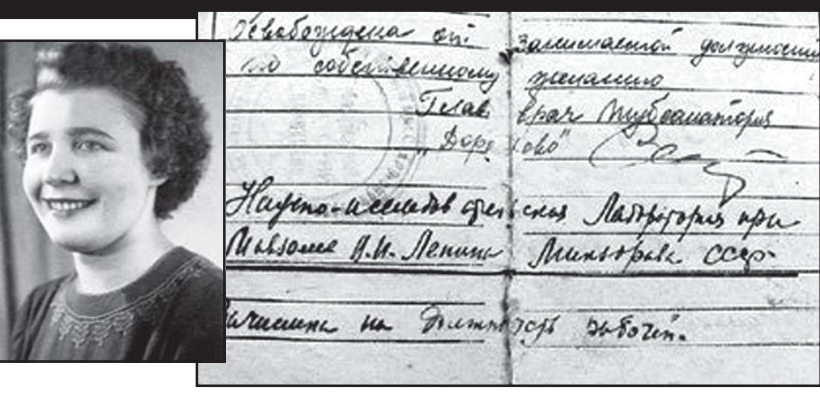 Освобождена от занимаемой должности
по собственному желанию
Глав врач тубсанатория
"Дорохово"
Научно-исследовательская Лаборатория при
Мавзолее В.И. Ленина Минздрава СССР
Зачислена на должность рабочей.